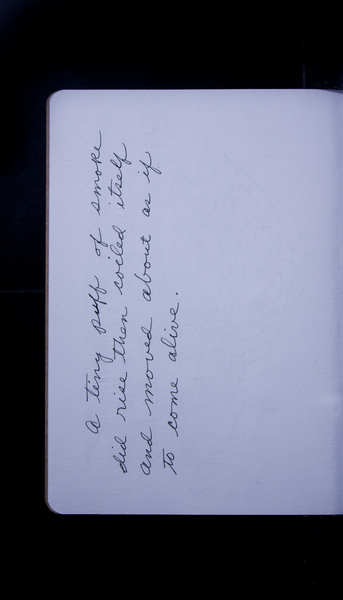 A tiny puff of smoke
did rise then coiled itself
and moved about as if
to come alive.